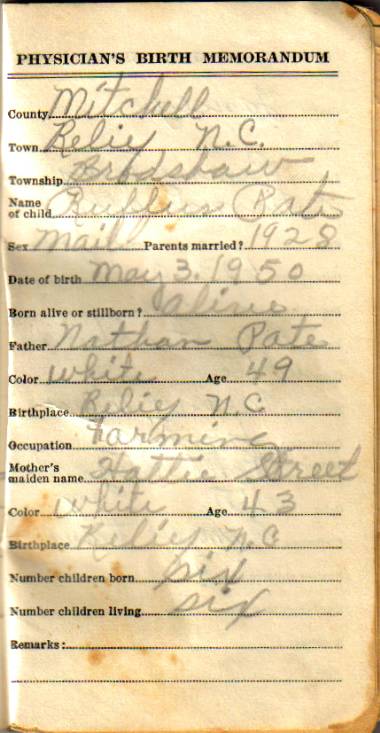 PHYSICIAN'S BIRTH MEMORANDUM
County Mitchell
Town Relief N.C.
Township Bradshaw
Name of child Pate
Sex mail Parents married? 1928
Date of birth may 3. 1950
Born alive or stillborn? alive
Father Nathan Pate
Color white Age 49
Birthplace Relief N.C
Occupation Farming
Mother's maiden name Hattie Street
Color white Age 43
Birthplace Relief N.C
Number children born six
Number children living six
Remarks: